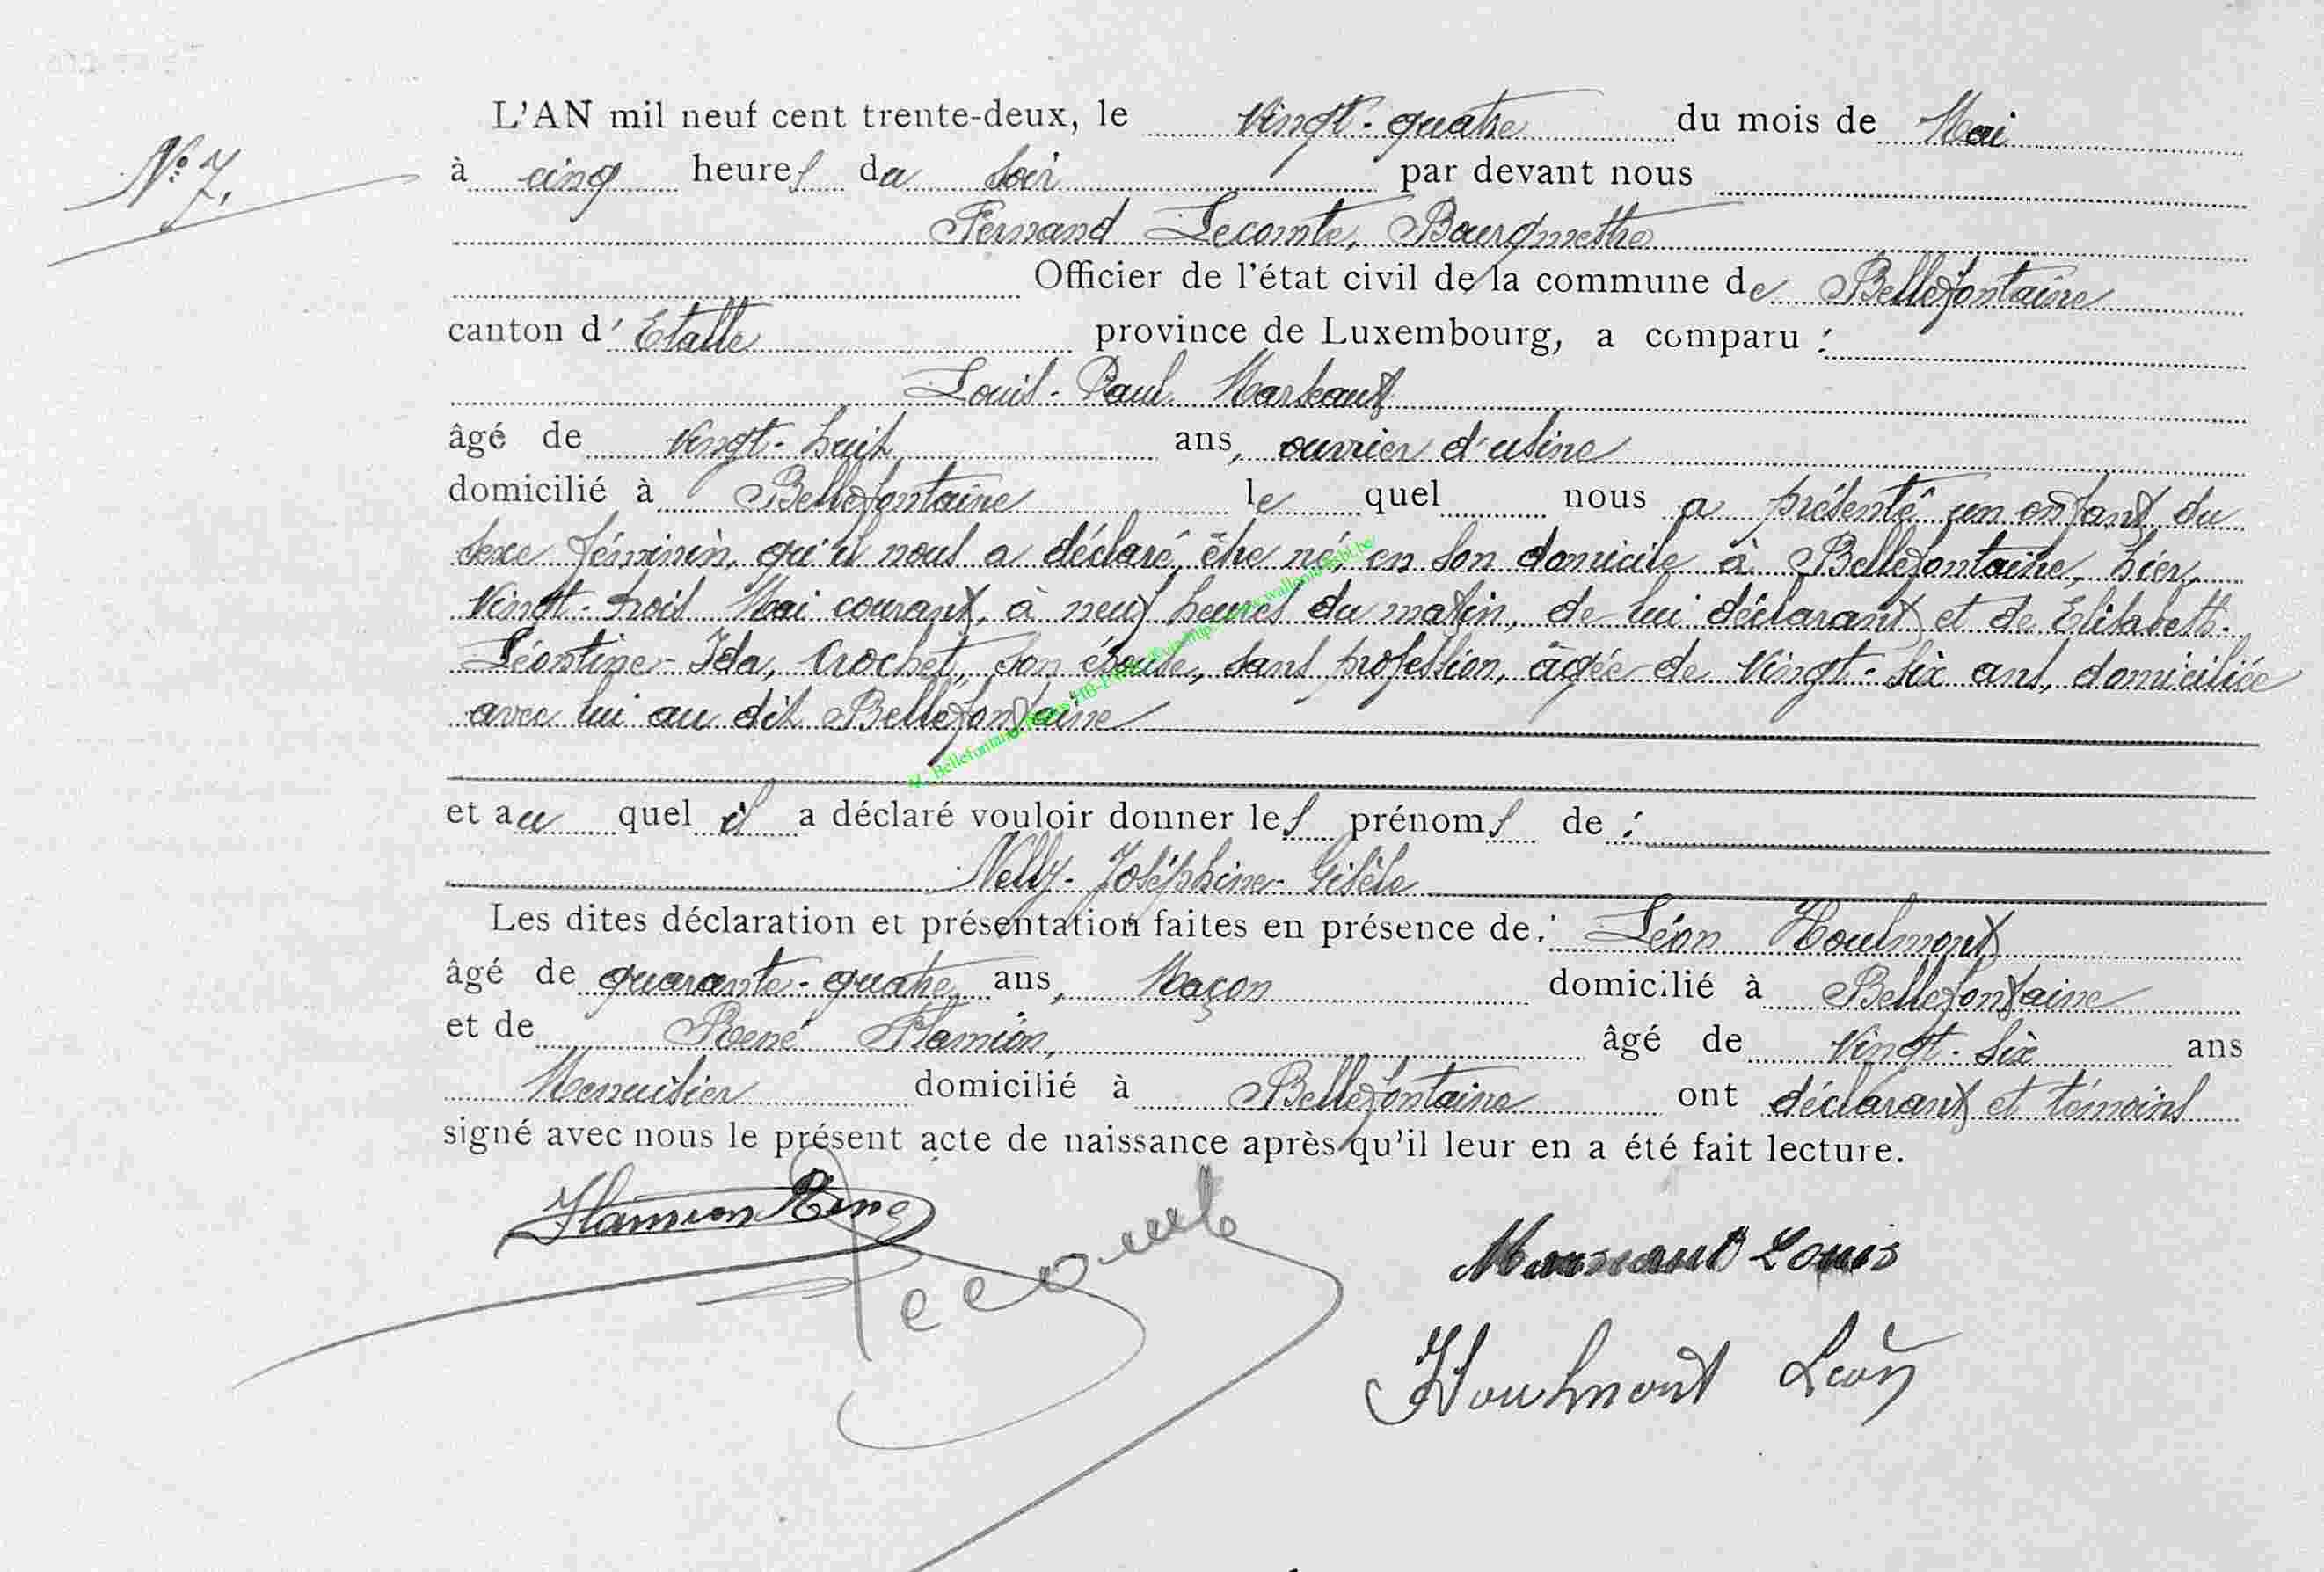 L'AN mil neuf cent trente-deux, le vingt-quatre du mois de Mai
N° 7.
à cinq heures du soir par devant nous
Fernand Lecomte, Bourgmestre
Officier de l'état civil de la commune de Bellefontaine
canton d'Etalle province de Luxembourg, a comparu :
Louis-Paul Marseaut
âgé de vingt-huit ans, ouvrier d'usine
domicilié à Bellefontaine lequel nous a présenté un enfant du
sexe féminin, qu'il nous a déclaré être né, en son domicile à Bellefontaine, hier,
vingt-trois Mai courant, à neuf heures du matin, de lui déclarant et de Élisabeth-
Léontine-Ida, Crochet, son épouse, sans profession, âgée de vingt-six ans, domiciliée
avec lui au dit Bellefontaine
et auquel il a déclaré vouloir donner les prénoms de :
Nelly-Joséphine-Gisèle
Les dites déclaration et présentation faites en présence de : Léon Houlmont
âgé de quarante-quatre ans, Maçon domicilié à Bellefontaine
et de René Flamion, âgé de vingt-six ans
Menuisier domicilié à Bellefontaine ont déclarant et témoins
signé avec nous le présent acte de naissance après qu'il leur en a été fait lecture.
Flamion René
Lecomte
Marseaut Louis
Houlmont Léon